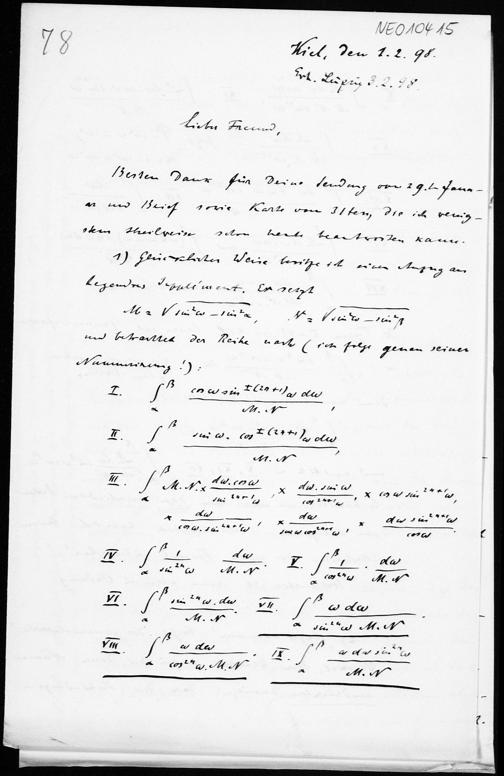 78
NEO10415
Kiel, den 1.2.98.
Erh. Leipzig 3.2.98.
Lieber Freund,
Besten Dank für Deine Sendung vom 29.ten Janu-
ar und Brief sowie Karte vom 31ten, die ich wenig-
stens theilweise schon heute beantworten kann.
1) Glücklicher Weise besitze ich einen Auszug aus
Legendres Supplément. Er setzt
M = √(sin²ω − sin²α), N = √(sin²ω − sin²β)
und betrachtet der Reihe nach (ich folge genau seiner
Nummerirung!):
I. ∫_α^β cosω sin^{±(2n+1)}ω dω / M.N,
II. ∫_α^β sinω. cos^{±(2n+1)}ω dω / M.N,
III. ∫_α^β M.N. × dω.cosω / sin^{2n+1}ω, × dω.sinω / cos^{2n+1}ω, × cosω sin^{2n+1}ω,
× dω / cosω.sin^{2n+1}ω, × dω / sinω cos^{2n+1}ω, × dω sin^{2n+1}ω / cosω.
IV. ∫_α^β 1/sin^{2n}ω dω/M.N. V. ∫_α^β 1/cos^{2n}ω . dω/M.N
VI. ∫_α^β sin^{2n}ω.dω / M.N. VII. ∫_α^β ω dω / sin^{2n}ω M.N.
VIII. ∫_α^β ω dω / cos^{2n}ω.M.N. IX. ∫_α^β ω dω sin^{2n}ω / M.N